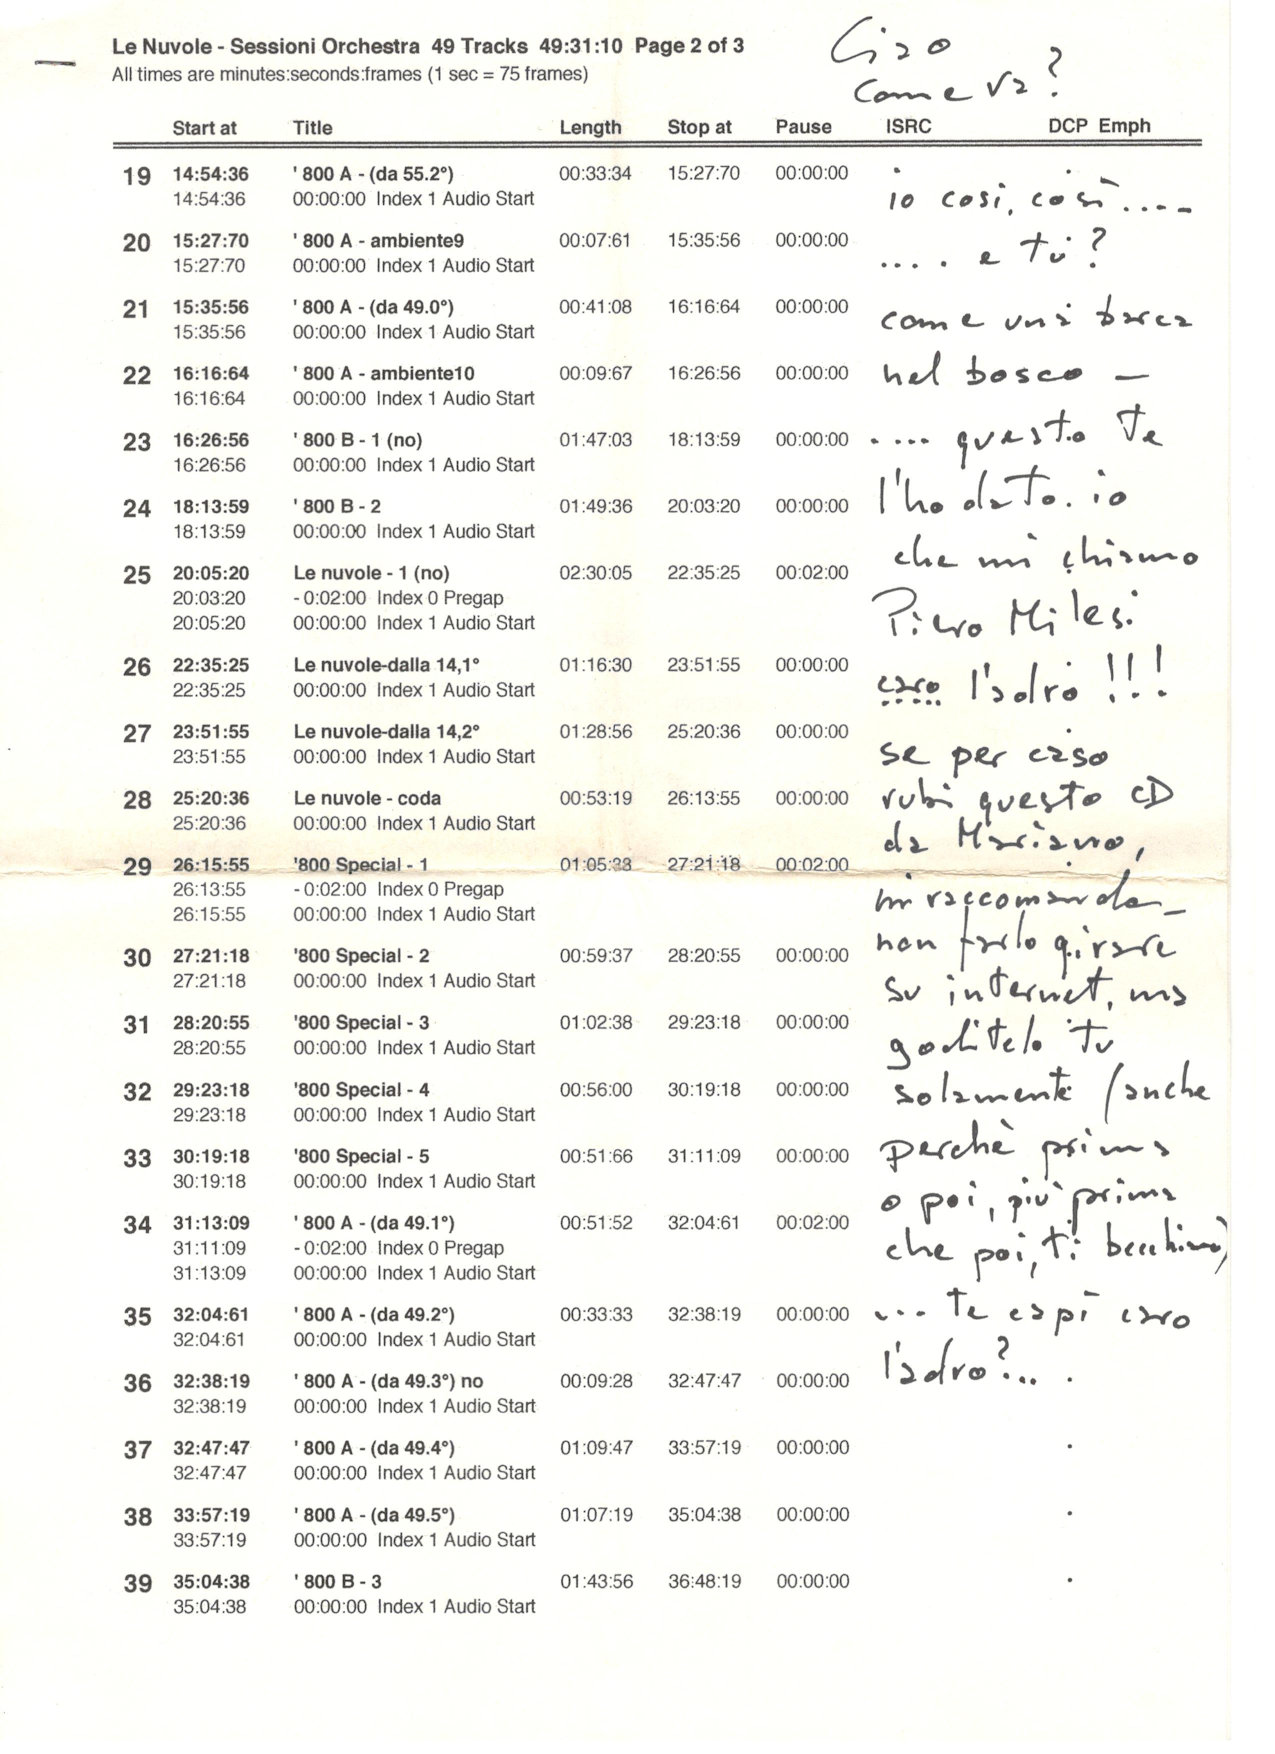 Le Nuvole - Sessioni Orchestra 49 Tracks 49:31:10 Page 2 of 3
All times are minutes:seconds:frames (1 sec = 75 frames)
Ciao
come va?
Start at Title Length Stop at Pause ISRC DCP Emph
19 14:54:36 ' 800 A - (da 55.2°) 00:33:34 15:27:70 00:00:00
14:54:36 00:00:00 Index 1 Audio Start
20 15:27:70 ' 800 A - ambiente9 00:07:61 15:35:56 00:00:00
15:27:70 00:00:00 Index 1 Audio Start
21 15:35:56 ' 800 A - (da 49.0°) 00:41:08 16:16:64 00:00:00
15:35:56 00:00:00 Index 1 Audio Start
22 16:16:64 ' 800 A - ambiente10 00:09:67 16:26:56 00:00:00
16:16:64 00:00:00 Index 1 Audio Start
23 16:26:56 ' 800 B - 1 (no) 01:47:03 18:13:59 00:00:00
16:26:56 00:00:00 Index 1 Audio Start
24 18:13:59 ' 800 B - 2 01:49:36 20:03:20 00:00:00
18:13:59 00:00:00 Index 1 Audio Start
25 20:05:20 Le nuvole - 1 (no) 02:30:05 22:35:25 00:02:00
20:03:20 - 0:02:00 Index 0 Pregap
20:05:20 00:00:00 Index 1 Audio Start
26 22:35:25 Le nuvole-dalla 14,1° 01:16:30 23:51:55 00:00:00
22:35:25 00:00:00 Index 1 Audio Start
27 23:51:55 Le nuvole-dalla 14,2° 01:28:56 25:20:36 00:00:00
23:51:55 00:00:00 Index 1 Audio Start
28 25:20:36 Le nuvole - coda 00:53:19 26:13:55 00:00:00
25:20:36 00:00:00 Index 1 Audio Start
29 26:15:55 '800 Special - 1 01:05:38 27:21:18 00:02:00
26:13:55 - 0:02:00 Index 0 Pregap
26:15:55 00:00:00 Index 1 Audio Start
30 27:21:18 '800 Special - 2 00:59:37 28:20:55 00:00:00
27:21:18 00:00:00 Index 1 Audio Start
31 28:20:55 '800 Special - 3 01:02:38 29:23:18 00:00:00
28:20:55 00:00:00 Index 1 Audio Start
32 29:23:18 '800 Special - 4 00:56:00 30:19:18 00:00:00
29:23:18 00:00:00 Index 1 Audio Start
33 30:19:18 '800 Special - 5 00:51:66 31:11:09 00:00:00
30:19:18 00:00:00 Index 1 Audio Start
34 31:13:09 ' 800 A - (da 49.1°) 00:51:52 32:04:61 00:02:00
31:11:09 - 0:02:00 Index 0 Pregap
31:13:09 00:00:00 Index 1 Audio Start
35 32:04:61 ' 800 A - (da 49.2°) 00:33:33 32:38:19 00:00:00
32:04:61 00:00:00 Index 1 Audio Start
36 32:38:19 ' 800 A - (da 49.3°) no 00:09:28 32:47:47 00:00:00
32:38:19 00:00:00 Index 1 Audio Start
37 32:47:47 ' 800 A - (da 49.4°) 01:09:47 33:57:19 00:00:00
32:47:47 00:00:00 Index 1 Audio Start
38 33:57:19 ' 800 A - (da 49.5°) 01:07:19 35:04:38 00:00:00
33:57:19 00:00:00 Index 1 Audio Start
39 35:04:38 ' 800 B - 3 01:43:56 36:48:19 00:00:00
35:04:38 00:00:00 Index 1 Audio Start
io così, così....
.... e tu?
come una barca
nel bosco —
.... questo te
l'ho dato. io
che mi chiamo
Piero Milesi
caro l'adro !!!
se per caso
rubi questo CD
da Mariano,
mi raccomando_
non farlo girare
su internet, ma
goditelo tu
solamente (anche
perchè prima
o poi, più prima
che poi, ti becchiamo)
... te capì caro
l'adro?...